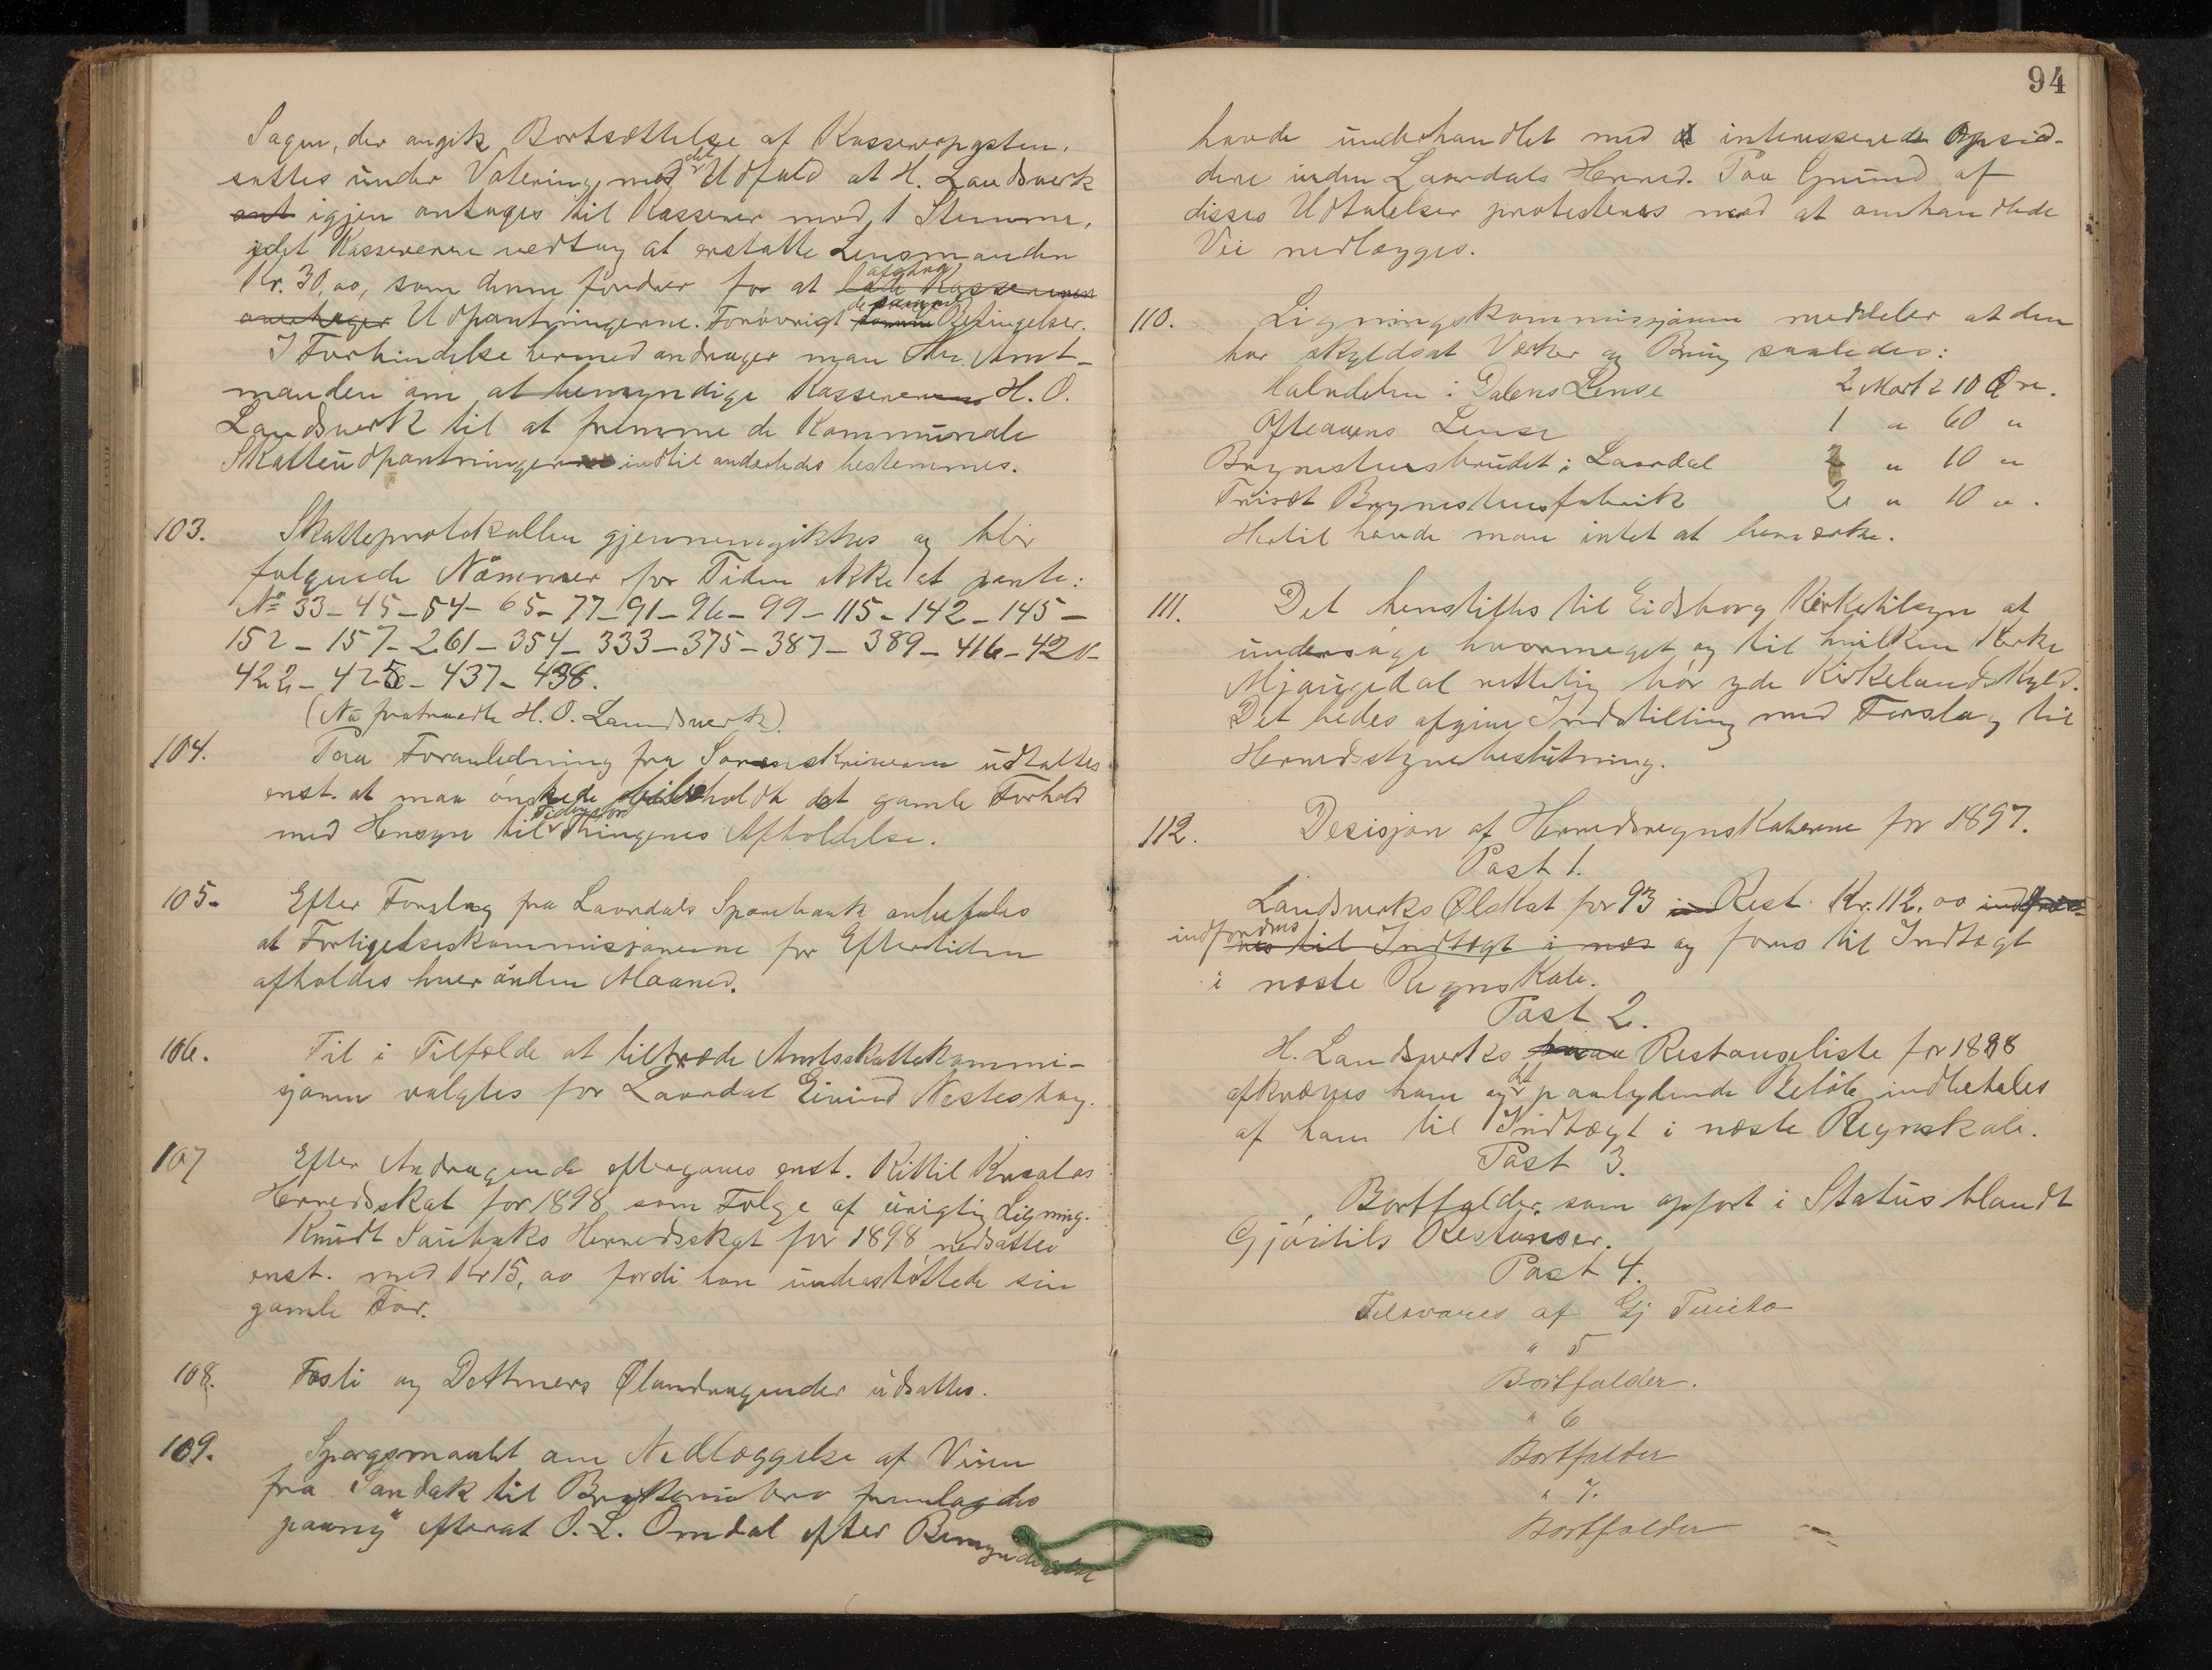 Sagen, der angik Bortsættelse af Kassererposten,
sattes under Votering med det Udfald at H. Landsverk
ant igjen antages til Kasserer mod 1 Stemme,
idet Kassereren vedtog at erstatte Lensmanden
Kr. 30,00, som denne fordrer for at afholde lade Kassereren
Udpantningerne. Forøvrigt de samme Betingelser.
I Forbindelse hermed andrager man Hr. Amt-
manden om at bemyndige Kassereren H. O.
Landsverk til at fremme de Kommunale
Skatteudpantninger indtil anderledes bestemmes.
103. Skatteprotokollen gjennemgikkes og blir
følgende Nummer for Tiden ikke at pante:
No 33-45-54-65-77-91-96-99-115-142-145-
152-157-261-354-333-375-387-389-416-420-
422-425-437-438.
(Nu fratraadte H. O. Landsverk).
104. Paa Foranledning fra Sorenskriveren udtaltes
enst. at man ønskede bibeholdt det gamle Forhold
med Hensyn til Tiden for Thingenes Afholdelse.
105. Efter Forslag fra Laurdals Sparebank anbefales
at Forligelseskommisjonerne for Eftertiden
afholdes hver anden Maaned.
106. Til i Tilfælde at tiltræde Amtsskattekommi-
sjonen valgtes for Laurdal Eivind Nesteshog.
107 Efter Andragende eftergaves enst. Kittil
Herredsskat for 1898 som Følge af urigtig Ligning.
Knudt Herredsskat for 1898 nedsattes
enst. med Kr 15,00 fordi han understøttede sin
gamle Far.
108. Fosli og Dettmers Ølandragender udsattes.
109. Spørgsmaalet om Nedlæggelse af Veien
fra Sandak til fremlagdes
paany efterat O. L. Omdal efter Bemyndigelse
94
havde underhandlet med interesserede Opsid-
dere inden Laurdals Herred. Paa Grund af
disses Udtalelser protesteres mod at omhandlede
Vei nedlægges.
110. Ligningskommisjonen meddeler at den
har skyldsat Værker og Brug saaledes:
Halvdelen i Dalens Lense 2 Mark 10 Øre.
Ofteaaens Lense 1 " 60 "
Brynestensbrudet i Laurdal 2 " 10 "
Triset Brynestensfabrik 2 " 10 ".
Hertil havde man intet at bemærke.
111. Det henstilles til Eidsborg Kirketilsyn at
undersøge hvormeget og til hvilken Kirke
Mjaugedal rettelig bør yde Kirkelandskyld.
Det bedes afgive Indstilling med Forslag til
Herredsstyrebeslutning.
112. Desisjon af Herredsregnskaberne for 1897.
Post 1.
Landsverks Ølskat for 93 i Rest Kr. 112,00
indfordres til Indtægt i næs og føres til Indtægt
i næste Regnskab.
Post 2.
H. Landsverks Restanseliste for 1898
afkræves ham og det paalydende Beløb indbetales
af ham til Indtægt i næste Regnskab.
Post 3.
Bortfalder som opført i Status blandt
Gjøitils Restanser.
Post 4.
Tilsvares af Gj
" 5
Bortfalder.
" 6
Bortfalder
" 7.
Bortfalder